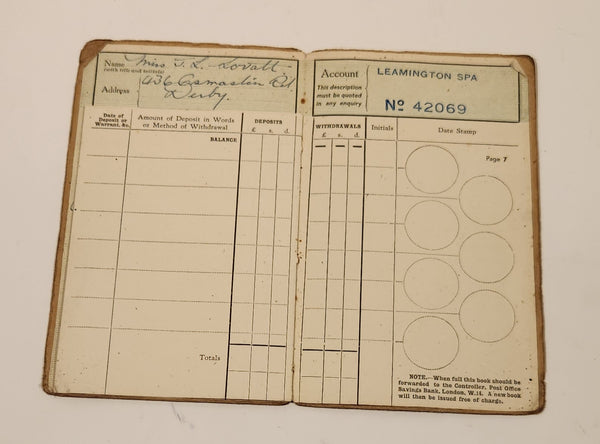 Name Miss I. L. Lovatt
(with title and surname)
Address 436 Osmaston Rd.
Derby.
Date of
Deposit or
Warrant, &c.
Amount of Deposit in Words
or Method of Withdrawal
DEPOSITS
£ s. d.
BALANCE
Totals
Account
This description
must be quoted
in any enquiry
LEAMINGTON SPA
No 42069
WITHDRAWALS
£ s. d.
Initials
Date Stamp
Page 7
NOTE.—When full this book should be
forwarded to the Controller, Post Office
Savings Bank, London, W.14. A new book
will then be issued free of charge.